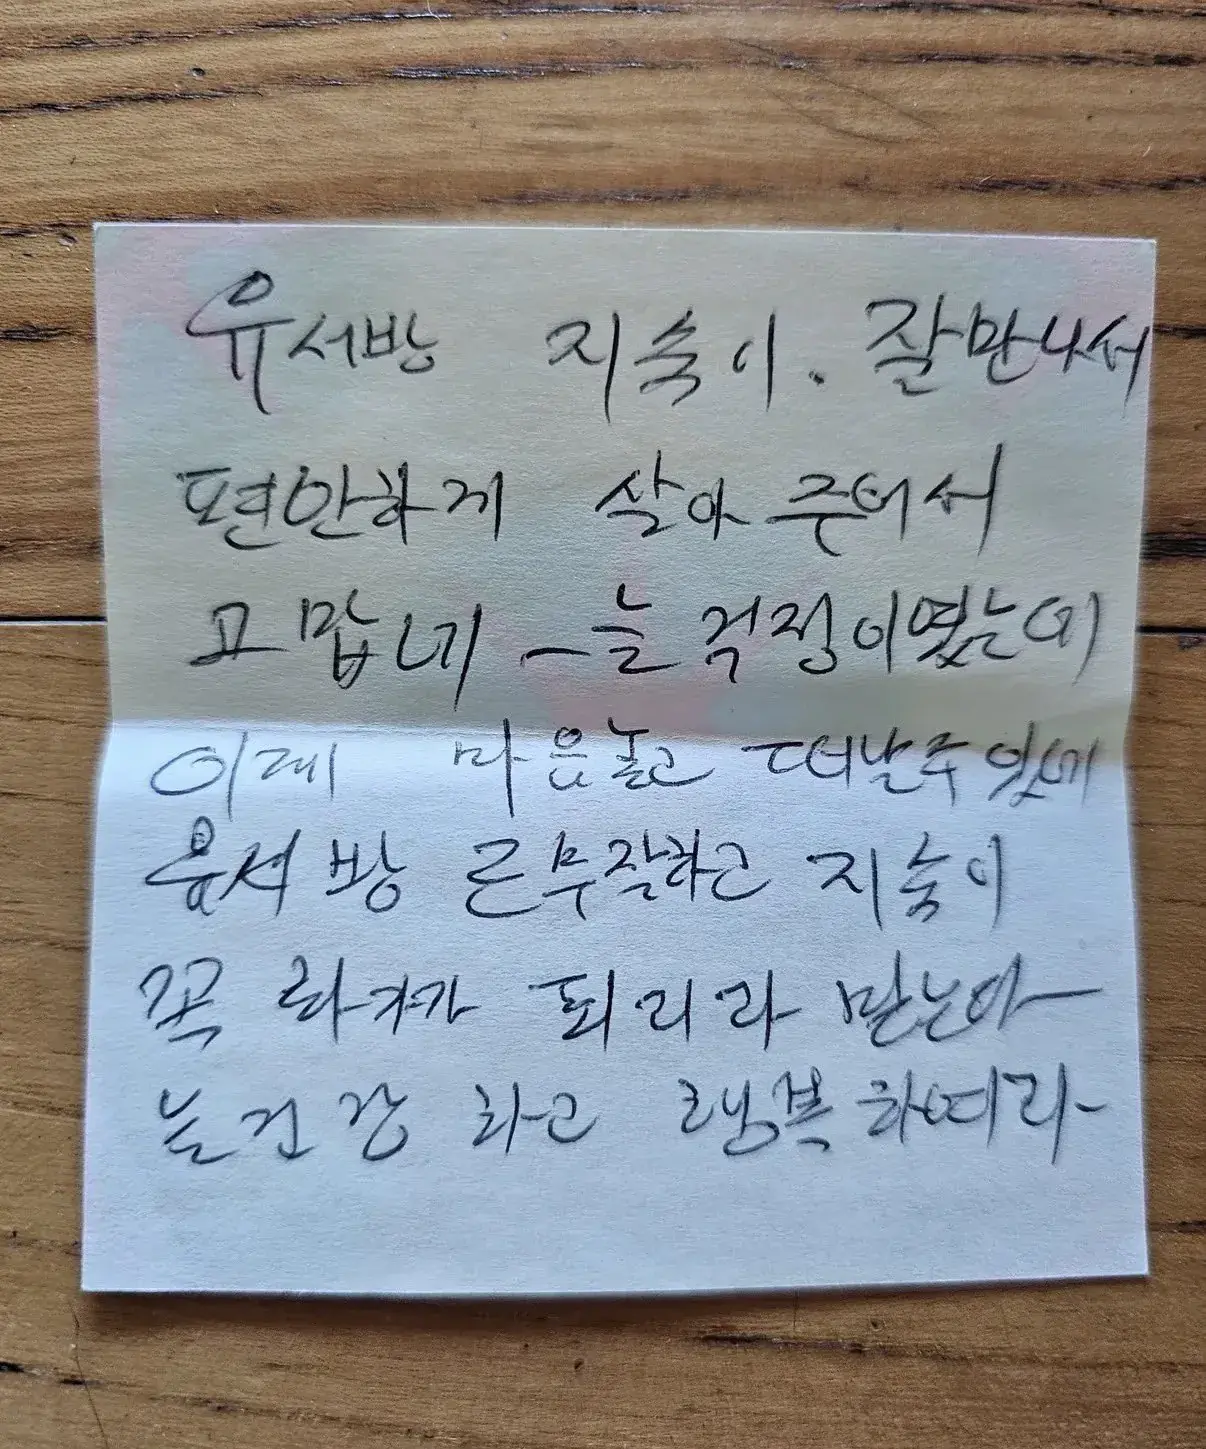 유서방 지숙이. 잘만나서
편안하게 살아 주어서
고맙네 - 늘 걱정이였는데
이제 마음놓고 떠날수있네
유서방 큰부잘하고 지숙이
꼭 화가가 되리라 믿는다 -
늘건강 하고 행복하여라 -